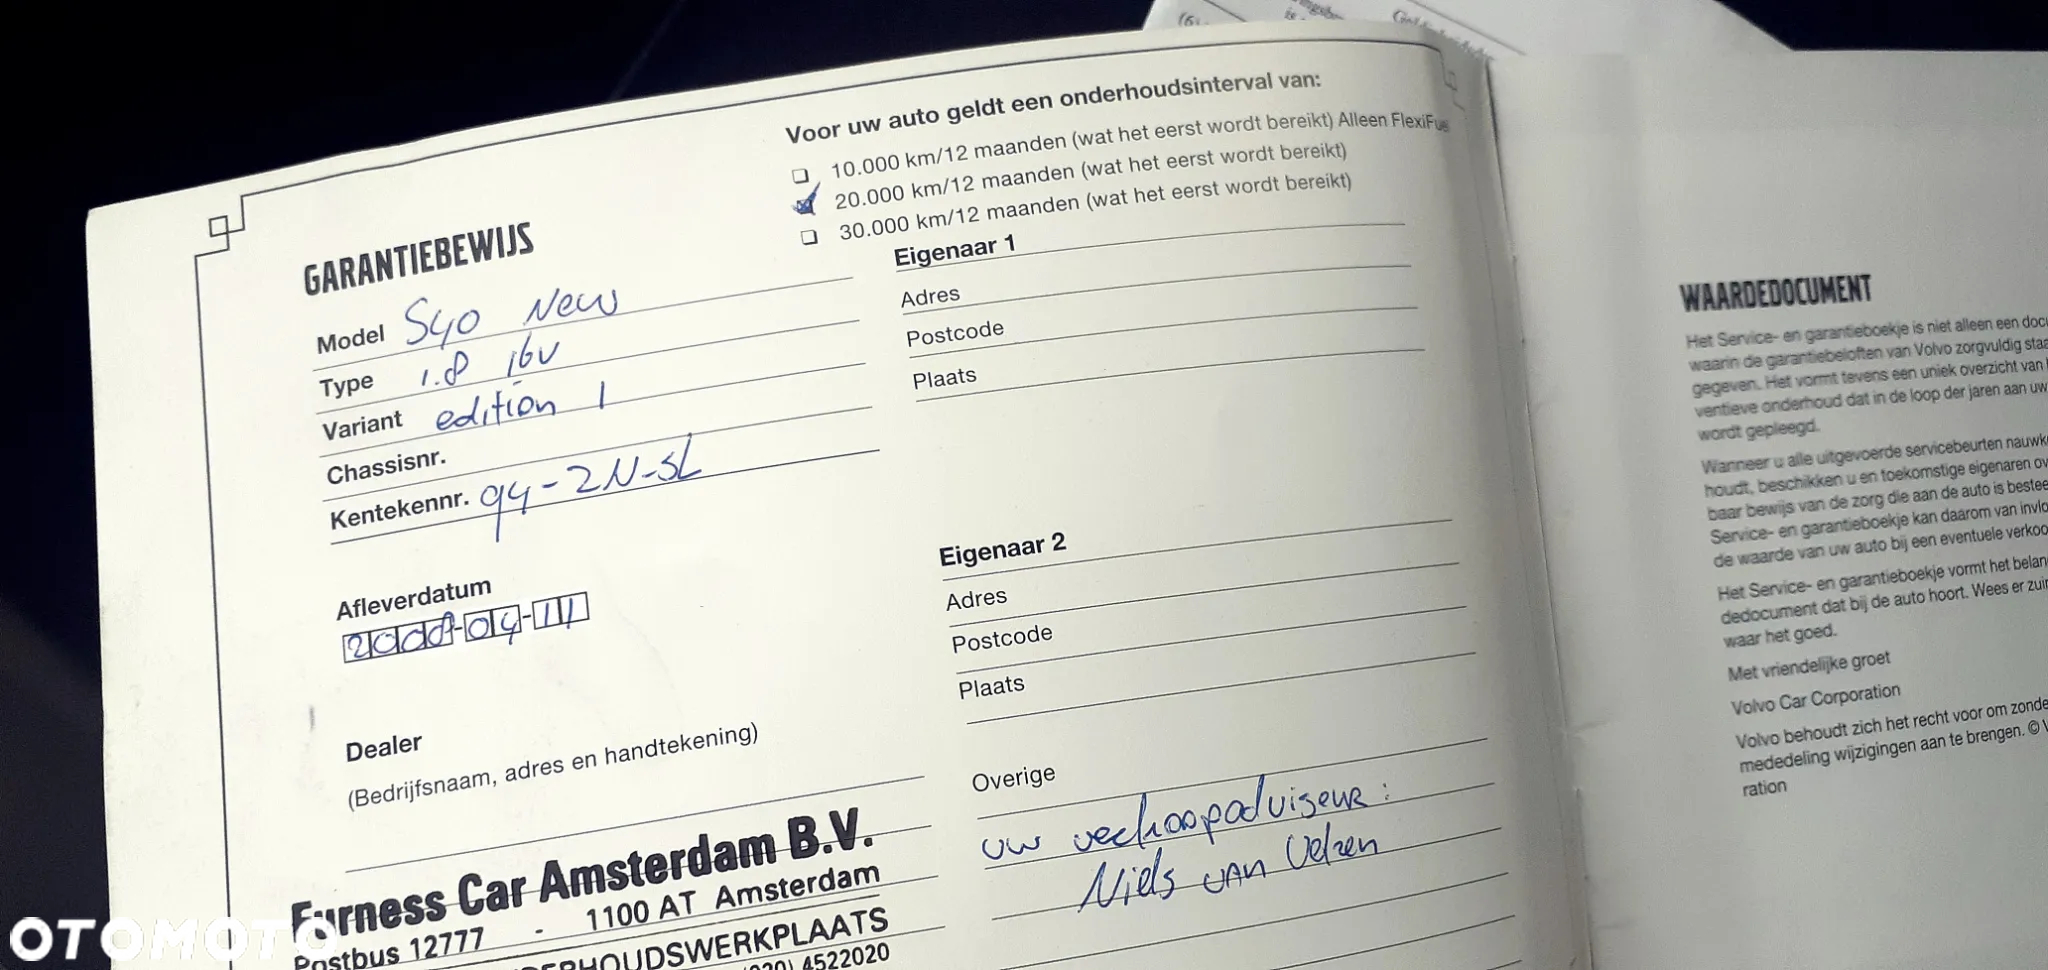 Voor uw auto geldt een onderhoudsinterval van:
10.000 km/12 maanden (wat het eerst wordt bereikt) Alleen FlexiFue
20.000 km/12 maanden (wat het eerst wordt bereikt)
30.000 km/12 maanden (wat het eerst wordt bereikt)
GARANTIEBEWIJS
Model S40 New
Type 1.8 16v
Variant edition 1
Chassisnr.
Kentekennr. 94-ZN-SL
Afleverdatum
2008-04-11
Dealer
(Bedrijfsnaam, adres en handtekening)
Furness Car Amsterdam B.V.
Postbus 12777 - 1100 AT Amsterdam
DERHOUDSWERKPLAATS
(020) 4522020
Eigenaar 1
Adres
Postcode
Plaats
Eigenaar 2
Adres
Postcode
Plaats
Overige
uw verkoopadviseur:
Niels van Velzen
WAARDEDOCUMENT
Het Service- en garantieboekje is niet alleen een doc
waarin de garantiebeloften van Volvo zorgvuldig staa
gegeven. Het vormt tevens een uniek overzicht van
ventieve onderhoud dat in de loop der jaren aan uw
wordt gepleegd.
Wanneer u alle uitgevoerde servicebeurten nauwk
houdt, beschikken u en toekomstige eigenaren ov
baar bewijs van de zorg die aan de auto is bestee
Service- en garantieboekje kan daarom van invlo
de waarde van uw auto bij een eventuele verkoo
Het Service- en garantieboekje vormt het belan
dedocument dat bij de auto hoort. Wees er zuin
waar het goed.
Met vriendelijke groet
Volvo Car Corporation
Volvo behoudt zich het recht voor om zonde
mededeling wijzigingen aan te brengen. © V
ration
OTOMOTO